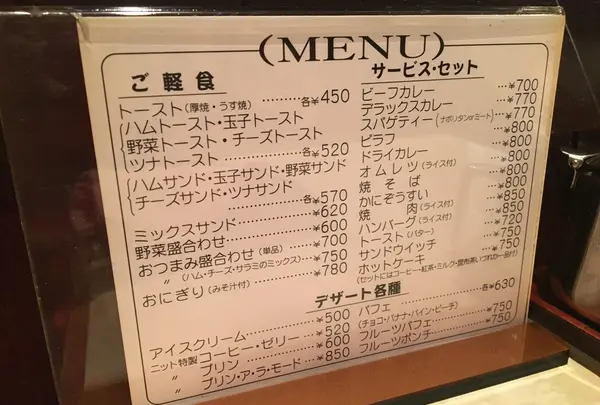 (MENU)
ご軽食
トースト(厚焼・うす焼)…………各¥450
ハムトースト・玉子トースト
野菜トースト・チーズトースト
ツナトースト…………各¥520
ハムサンド・玉子サンド・野菜サンド
チーズサンド・ツナサンド
…………各¥570
ミックスサンド…………¥620
野菜盛合わせ…………¥600
おつまみ盛合わせ(単品)……¥700
〃(ハム・チーズ・サラミのミックス)…¥750
おにぎり(みそ汁付)…………¥780
サービス・セット
ビーフカレー…………¥700
デラックスカレー…………¥770
スパゲティー(ナポリタンorミート)…¥770
ピラフ…………¥800
ドライカレー…………¥800
オムレツ(ライス付)…………¥800
焼そば…………¥800
かにぞうすい…………¥800
焼肉(ライス付)…………¥850
ハンバーグ(ライス付)…………¥850
トースト(バター)…………¥720
サンドウイッチ…………¥750
ホットケーキ…………¥750
(セットにはコーヒー・紅茶・ミルク・昆布茶いづれか一品付)
デザート各種
アイスクリーム…………¥500
ニット特製 コーヒー・ゼリー…¥520
〃 プリン…………¥600
〃 プリン・ア・ラ・モード…¥850
パフェ…………各¥630
(チョコ・バナナ・パイン・ピーチ)
フルーツパフェ…………¥750
フルーツポンチ…………¥750